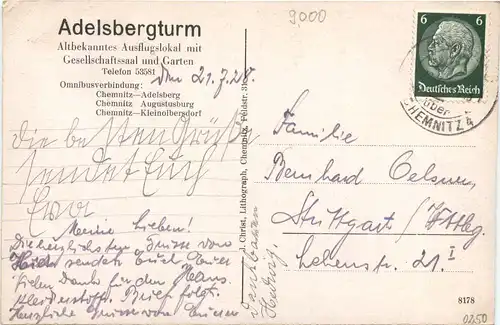 9,000
Adelsbergturm
Altbekanntes Ausflugslokal mit
Gesellschaftssaal und Garten
Telefon 53581
den 21.7.38.
Omnibusverbindung:
Chemnitz—Adelsberg
Chemnitz Augustusburg
Chemnitz—Kleinolbersdorf
die besten Grüße
sendet Euch
Meine Lieben!
Die herzlichsten Grüsse von
sendet Euch
Vielen Dank für den
Kleiderstoff. Brief folgt.
Herzliche Grüsse von
J. Christ, Lithograph, Chemnitz, Feldstr. 31
6 6
Deutsches Reich
über
CHEMNITZ 4
Familie
Bernhard Oelsner,
Stuttgart / Wttbg.
Lehenstr. 21. I
8178
0250